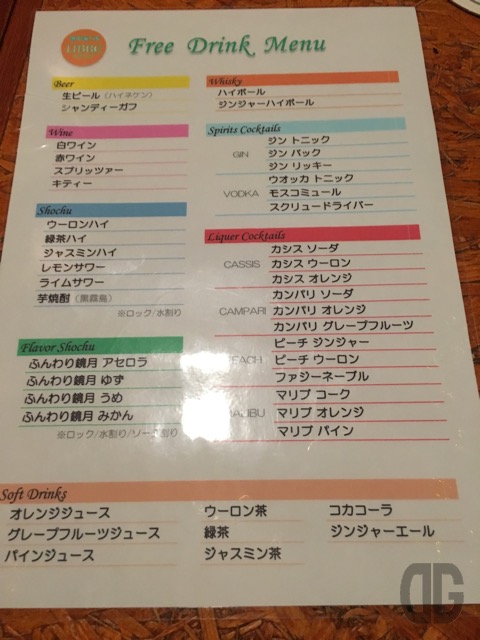 Free Drink Menu
Beer
生ビール（ハイネケン）
シャンディーガフ
Wine
白ワイン
赤ワイン
スプリッツァー
キティー
Shochu
ウーロンハイ
緑茶ハイ
ジャスミンハイ
レモンサワー
ライムサワー
芋焼酎（黒霧島）
※ロック/水割り
Flavor Shochu
ふんわり鏡月 アセロラ
ふんわり鏡月 ゆず
ふんわり鏡月 うめ
ふんわり鏡月 みかん
※ロック/水割り/ソーダ割り
Whisky
ハイボール
ジンジャーハイボール
Spirits Cocktails
GIN
ジン トニック
ジン バック
ジン リッキー
VODKA
ウオッカ トニック
モスコミュール
スクリュードライバー
Liquer Cocktails
CASSIS
カシス ソーダ
カシス ウーロン
カシス オレンジ
CAMPARI
カンパリ ソーダ
カンパリ オレンジ
カンパリ グレープフルーツ
PEACH
ピーチ ジンジャー
ピーチ ウーロン
ファジーネーブル
MALIBU
マリブ コーク
マリブ オレンジ
マリブ パイン
Soft Drinks
オレンジジュース
グレープフルーツジュース
パインジュース
ウーロン茶
緑茶
ジャスミン茶
コカコーラ
ジンジャーエール
DG